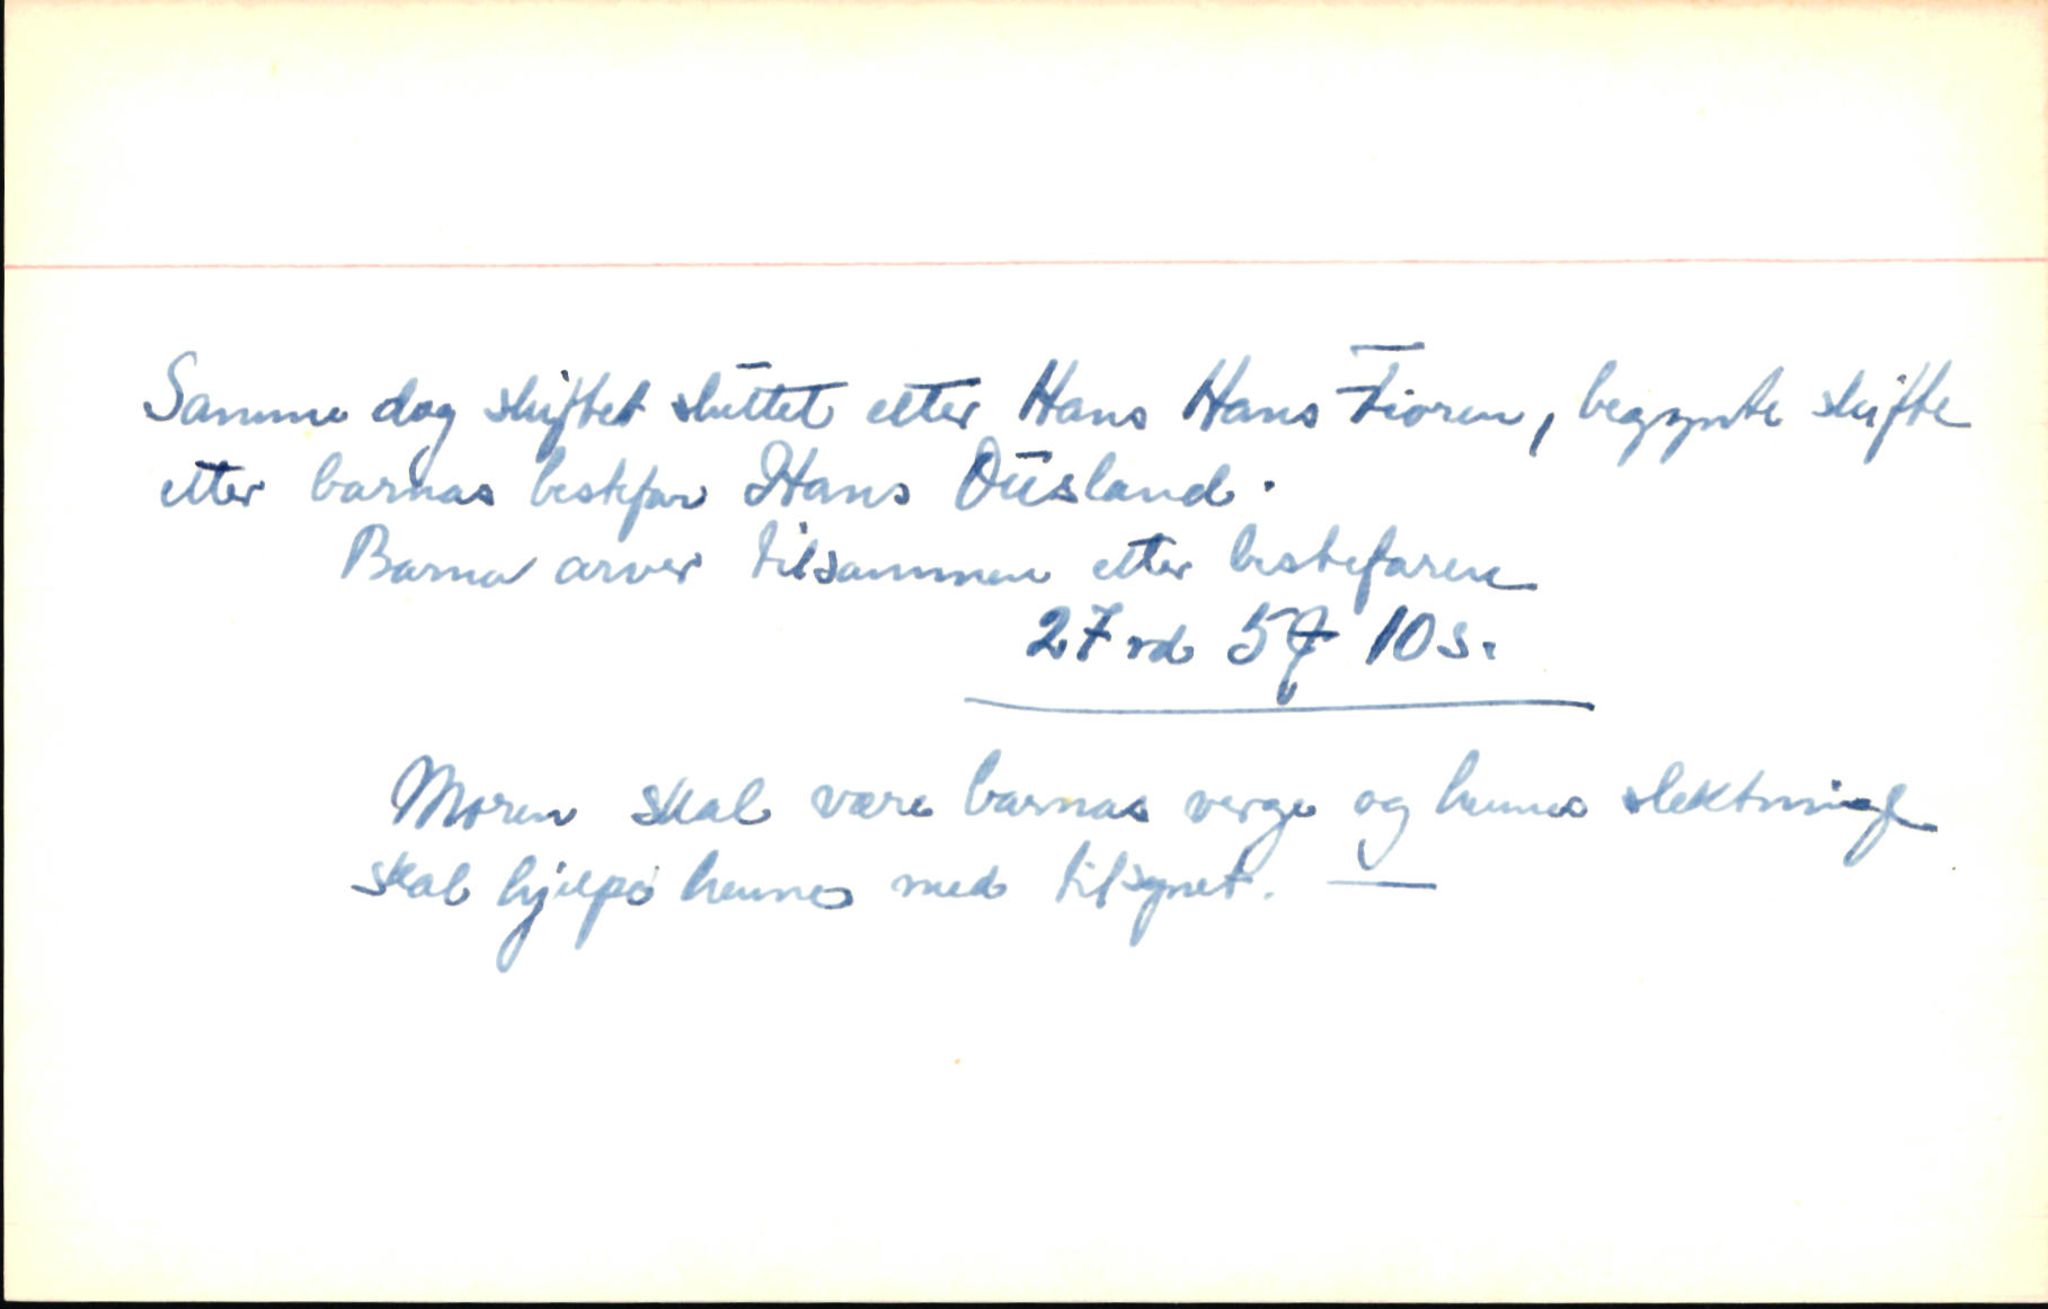 Samme dag skiftet sluttet etter Hans Hans Fioren, begynte skifte
etter barnas bestefar Hans Ousland.
Barna arver tilsammen etter bestefaren
27 rd 5 10 s.
Moren skal være barnas verge og hennes slektninge
skal hjelpe hennes med tilsynet. —